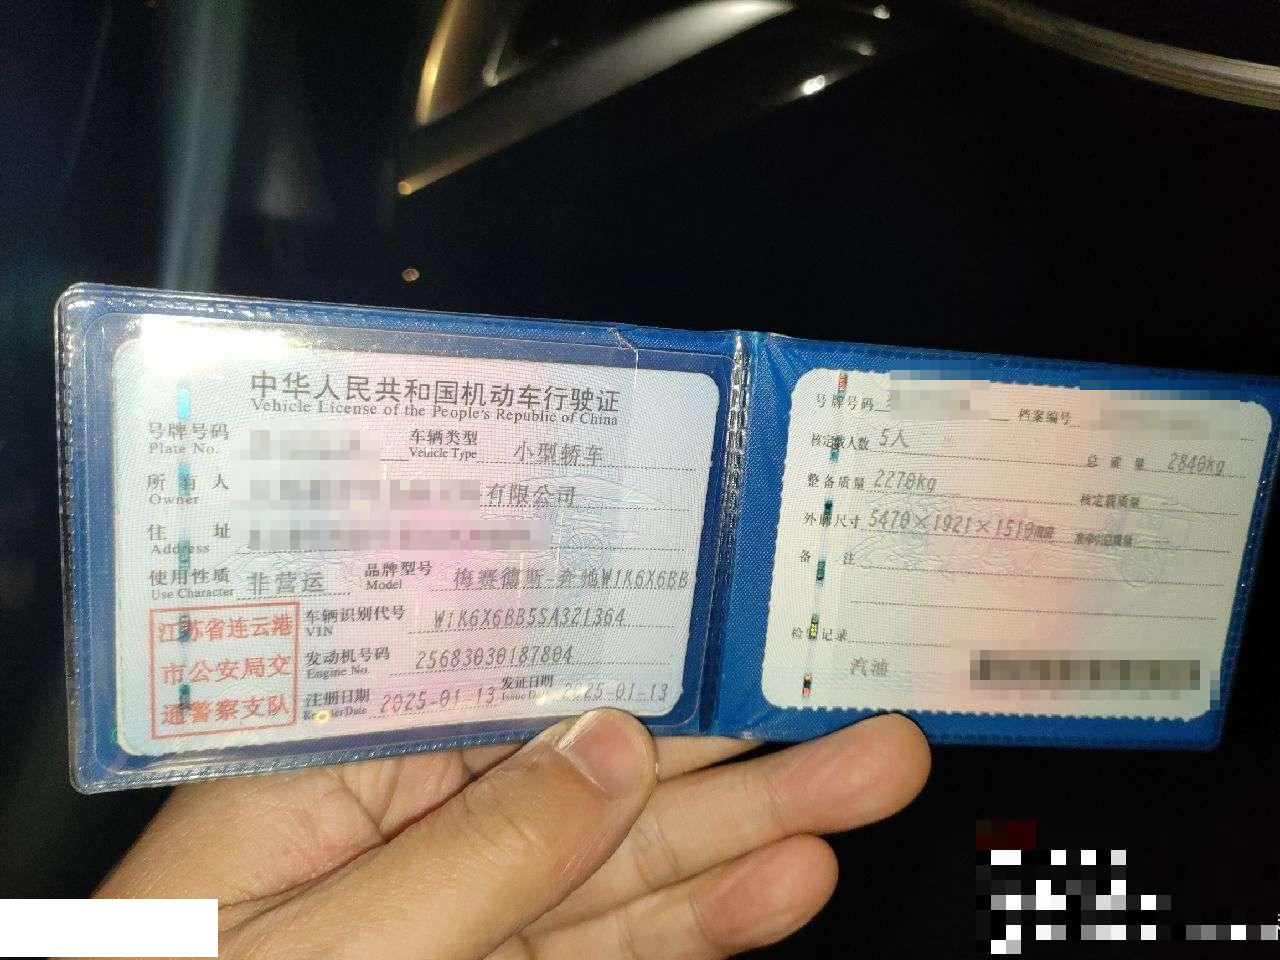 中华人民共和国机动车行驶证
Vehicle License of the People's Republic of China
号牌号码
Plate No.
车辆类型
Vehicle Type
小型轿车
所有人
Owner
有限公司
住 址
Address
使用性质
Use Character
非营运
品牌型号
Model
梅赛德斯-奔驰W1K6X6BB
江苏省连云港
市公安局交
通警察支队
车辆识别代号
VIN
W1K6X6BB5SA321364
发动机号码
Engine No.
25683030187804
注册日期
Register Date
2025-01-13
发证日期
Issue Date
2025-01-13
号牌号码
档案编号
核定载人数 5人
总质量 2840kg
整备质量 2270kg
核定载质量
外廓尺寸 5470×1921×1510mm
准牵引总质量
备 注
检验记录
汽油